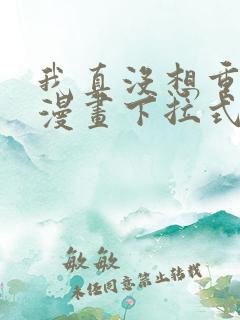 我真没想重
漫畫下拉式
敏敏
未经同意禁止转载